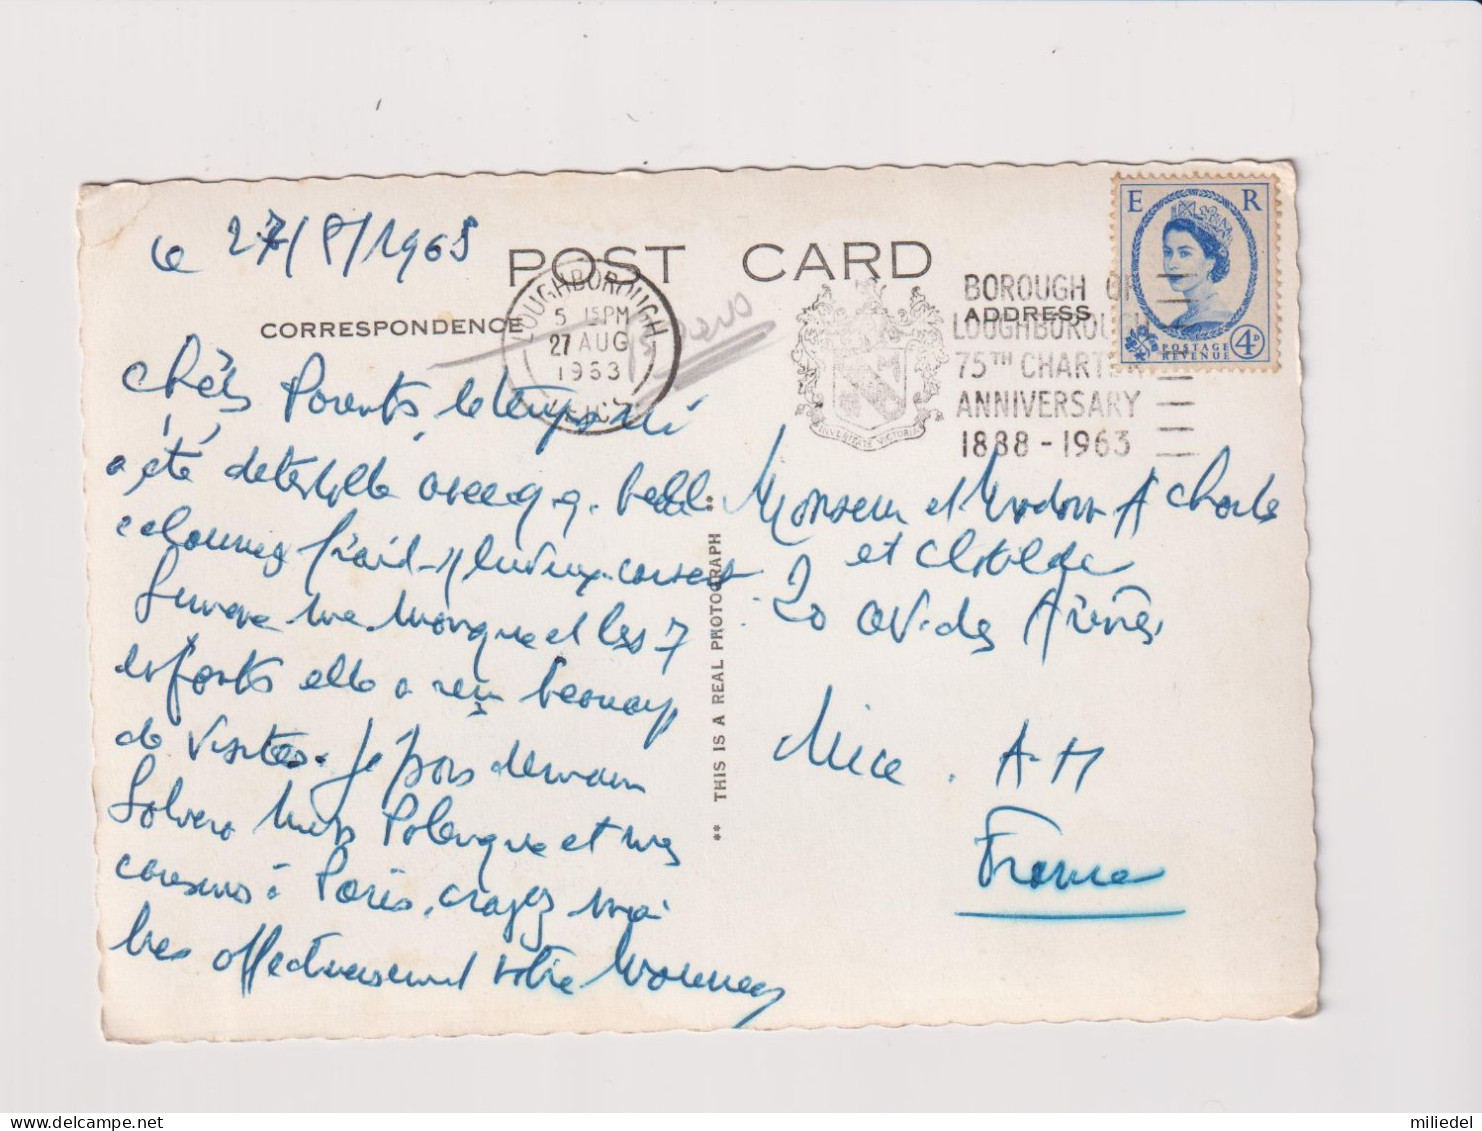 le 27/8/1963
POST CARD
CORRESPONDENCE
ADDRESS
LOUGHBOROUGH
5 15PM
27 AUG
1963
LEICS
BOROUGH OF
LOUGHBOROUGH
75TH CHARTER
ANNIVERSARY
1888-1963
INVESTIGATE VICTORIA
E R
POSTAGE
REVENUE
4D
Chers Parents, le temps ici
a été détestable avec q.q. belles
Simone me manque et les 7
enfants elle a reçu beaucoup
de visites. Je pars demain
et mes
cousins à Paris, croyez moi
très affectueusement votre
** THIS IS A REAL PHOTOGRAPH **
Monsieur et Madame Charles
et Clotilde
20 av. des Arènes
Nice. A-M
France
milledel